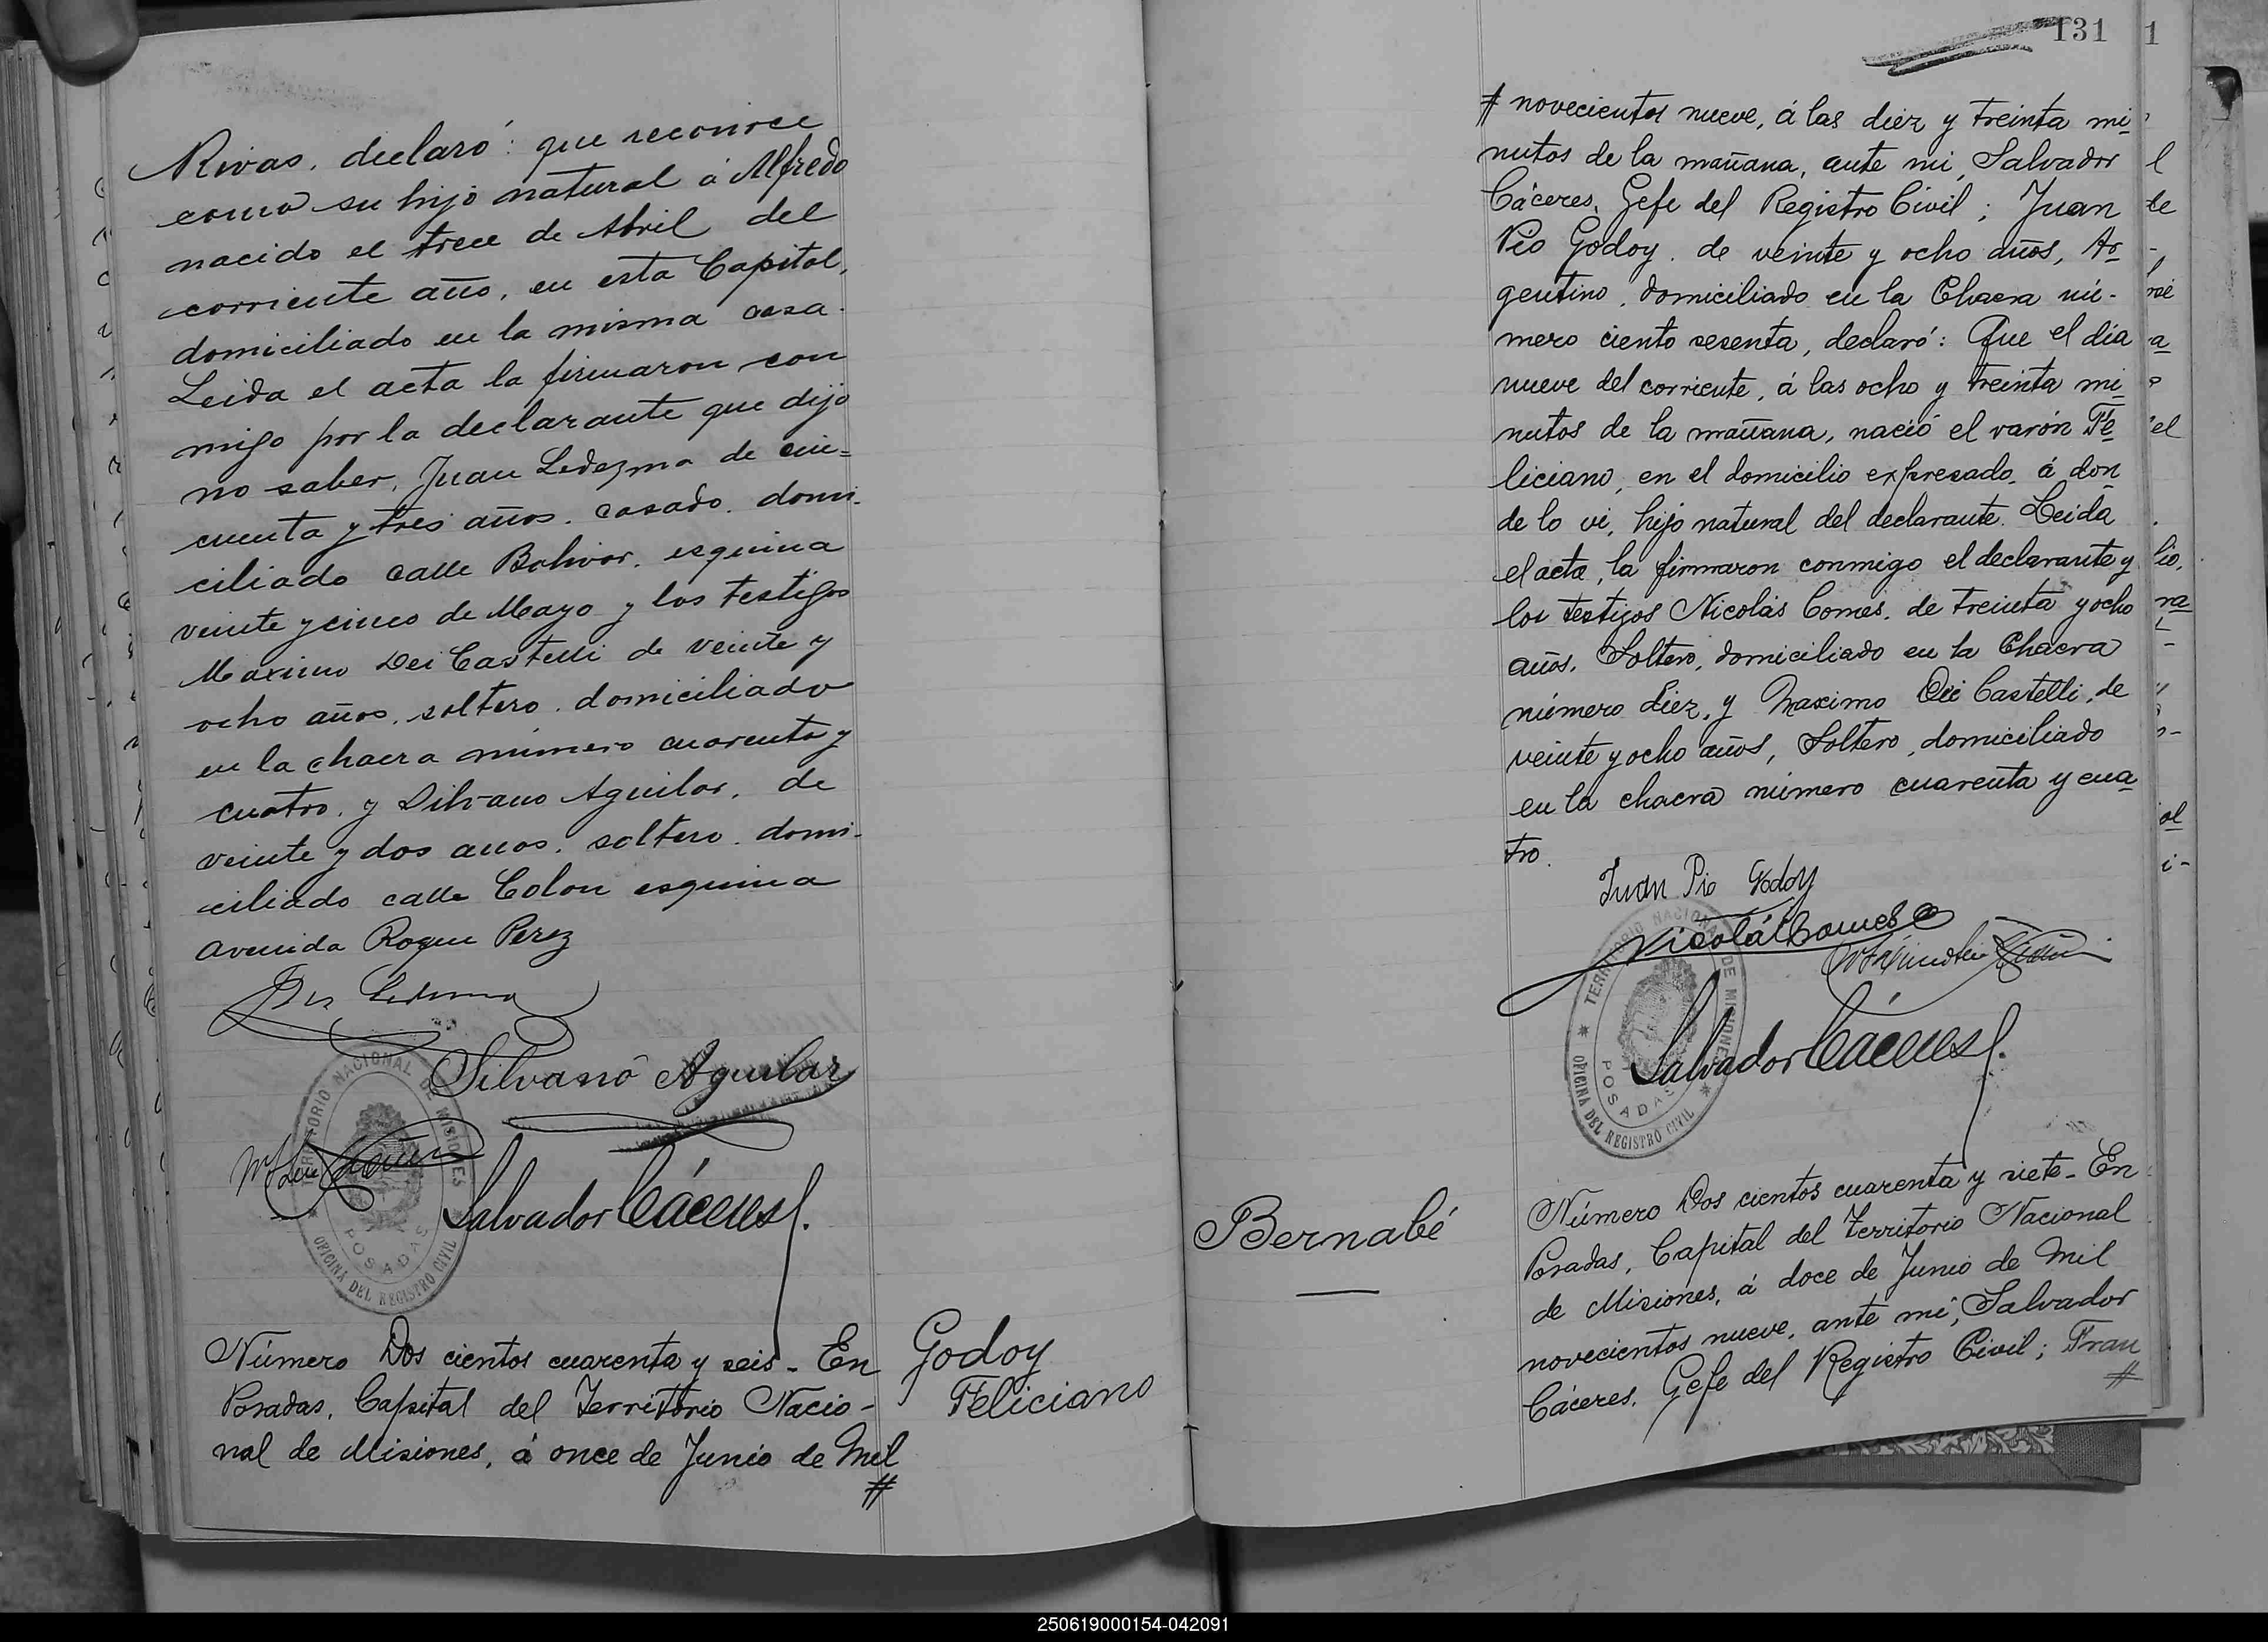 Rivas, declaró: que reconoce
como su hijo natural á Alfredo
nacido el trece de Abril del
corriente año, en esta Capital,
domiciliado en la misma casa.
Leida el acta la firmaron con
migo por la declarante que dijo
no saber, Juan Ledezma de cin=
cuenta y tres años. casado. domi-
ciliado calle Bolivar. esquina
veinte y cinco de Mayo y los testigos
Maximo Dei Castelli de veinte y
ocho años, soltero. domiciliado
en la chacra número cuarenta y
cuatro, y Silvano Aguilar, de
veinte y dos años, soltero. domi-
ciliado calle Colon esquina
avenida Roque Perez
Silvano Aguilar
TERRITORIO NACIONAL DE MISIONES
POSADAS
OFICINA DEL REGISTRO CIVIL
Salvador Cáceres
Número Dos cientos cuarenta y seis - En
Posadas, Capital del Territorio Nacio-
nal de Misiones, á once de Junio de Mil
#
Godoy
Feliciano
131
# novecientos nueve, á las diez y treinta mi
nutos de la mañana, ante mi, Salvador
Cáceres, Gefe del Registro Civil; Juan
Pio Godoy. de veinte y ocho años, Ar
gentino, domiciliado en la Chacra nú-
mero ciento sesenta, declaró: Que el dia
nueve del corriente, á las ocho y treinta mi
nutos de la mañana, nació el varón Fe
liciano, en el domicilio expresado, á don
de lo vi, hijo natural del declarante. Leida
el acta, la firmaron conmigo el declarante y
los testigos Nicolás Comes. de treinta y ocho
años. Soltero, domiciliado en la Chacra
número diez, y Maximo Dei Castelli, de
veinte y ocho años, Soltero, domiciliado
en la chacra número cuarenta y cua
tro.
Juan Pio Godoy
Nicolás Comes
TERRITORIO NACIONAL DE MISIONES
POSADAS
OFICINA DEL REGISTRO CIVIL
Salvador Cáceres
Bernabé
Número Dos cientos cuarenta y siete - En
Posadas, Capital del Territorio Nacional
de Misiones, á doce de Junio de Mil
novecientos nueve, ante mi, Salvador
Cáceres. Gefe del Registro Civil; Fran
#
250619000154-042091